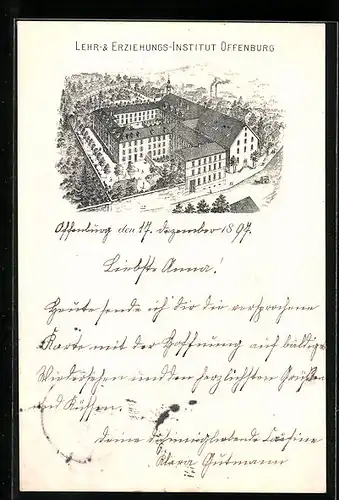 LEHR-& ERZIEHUNGS-INSTITUT OFFENBURG
Offenburg den 17. Dezember 1897.
Liebste Anna!
Heute sende ich dir die versprochene
Karte mit der Hoffnung auf baldiges
Wiedersehen und den herzlichsten Grüßen
und Küssen.
Deine dich innigliebende Cousine
Klara Gutmann